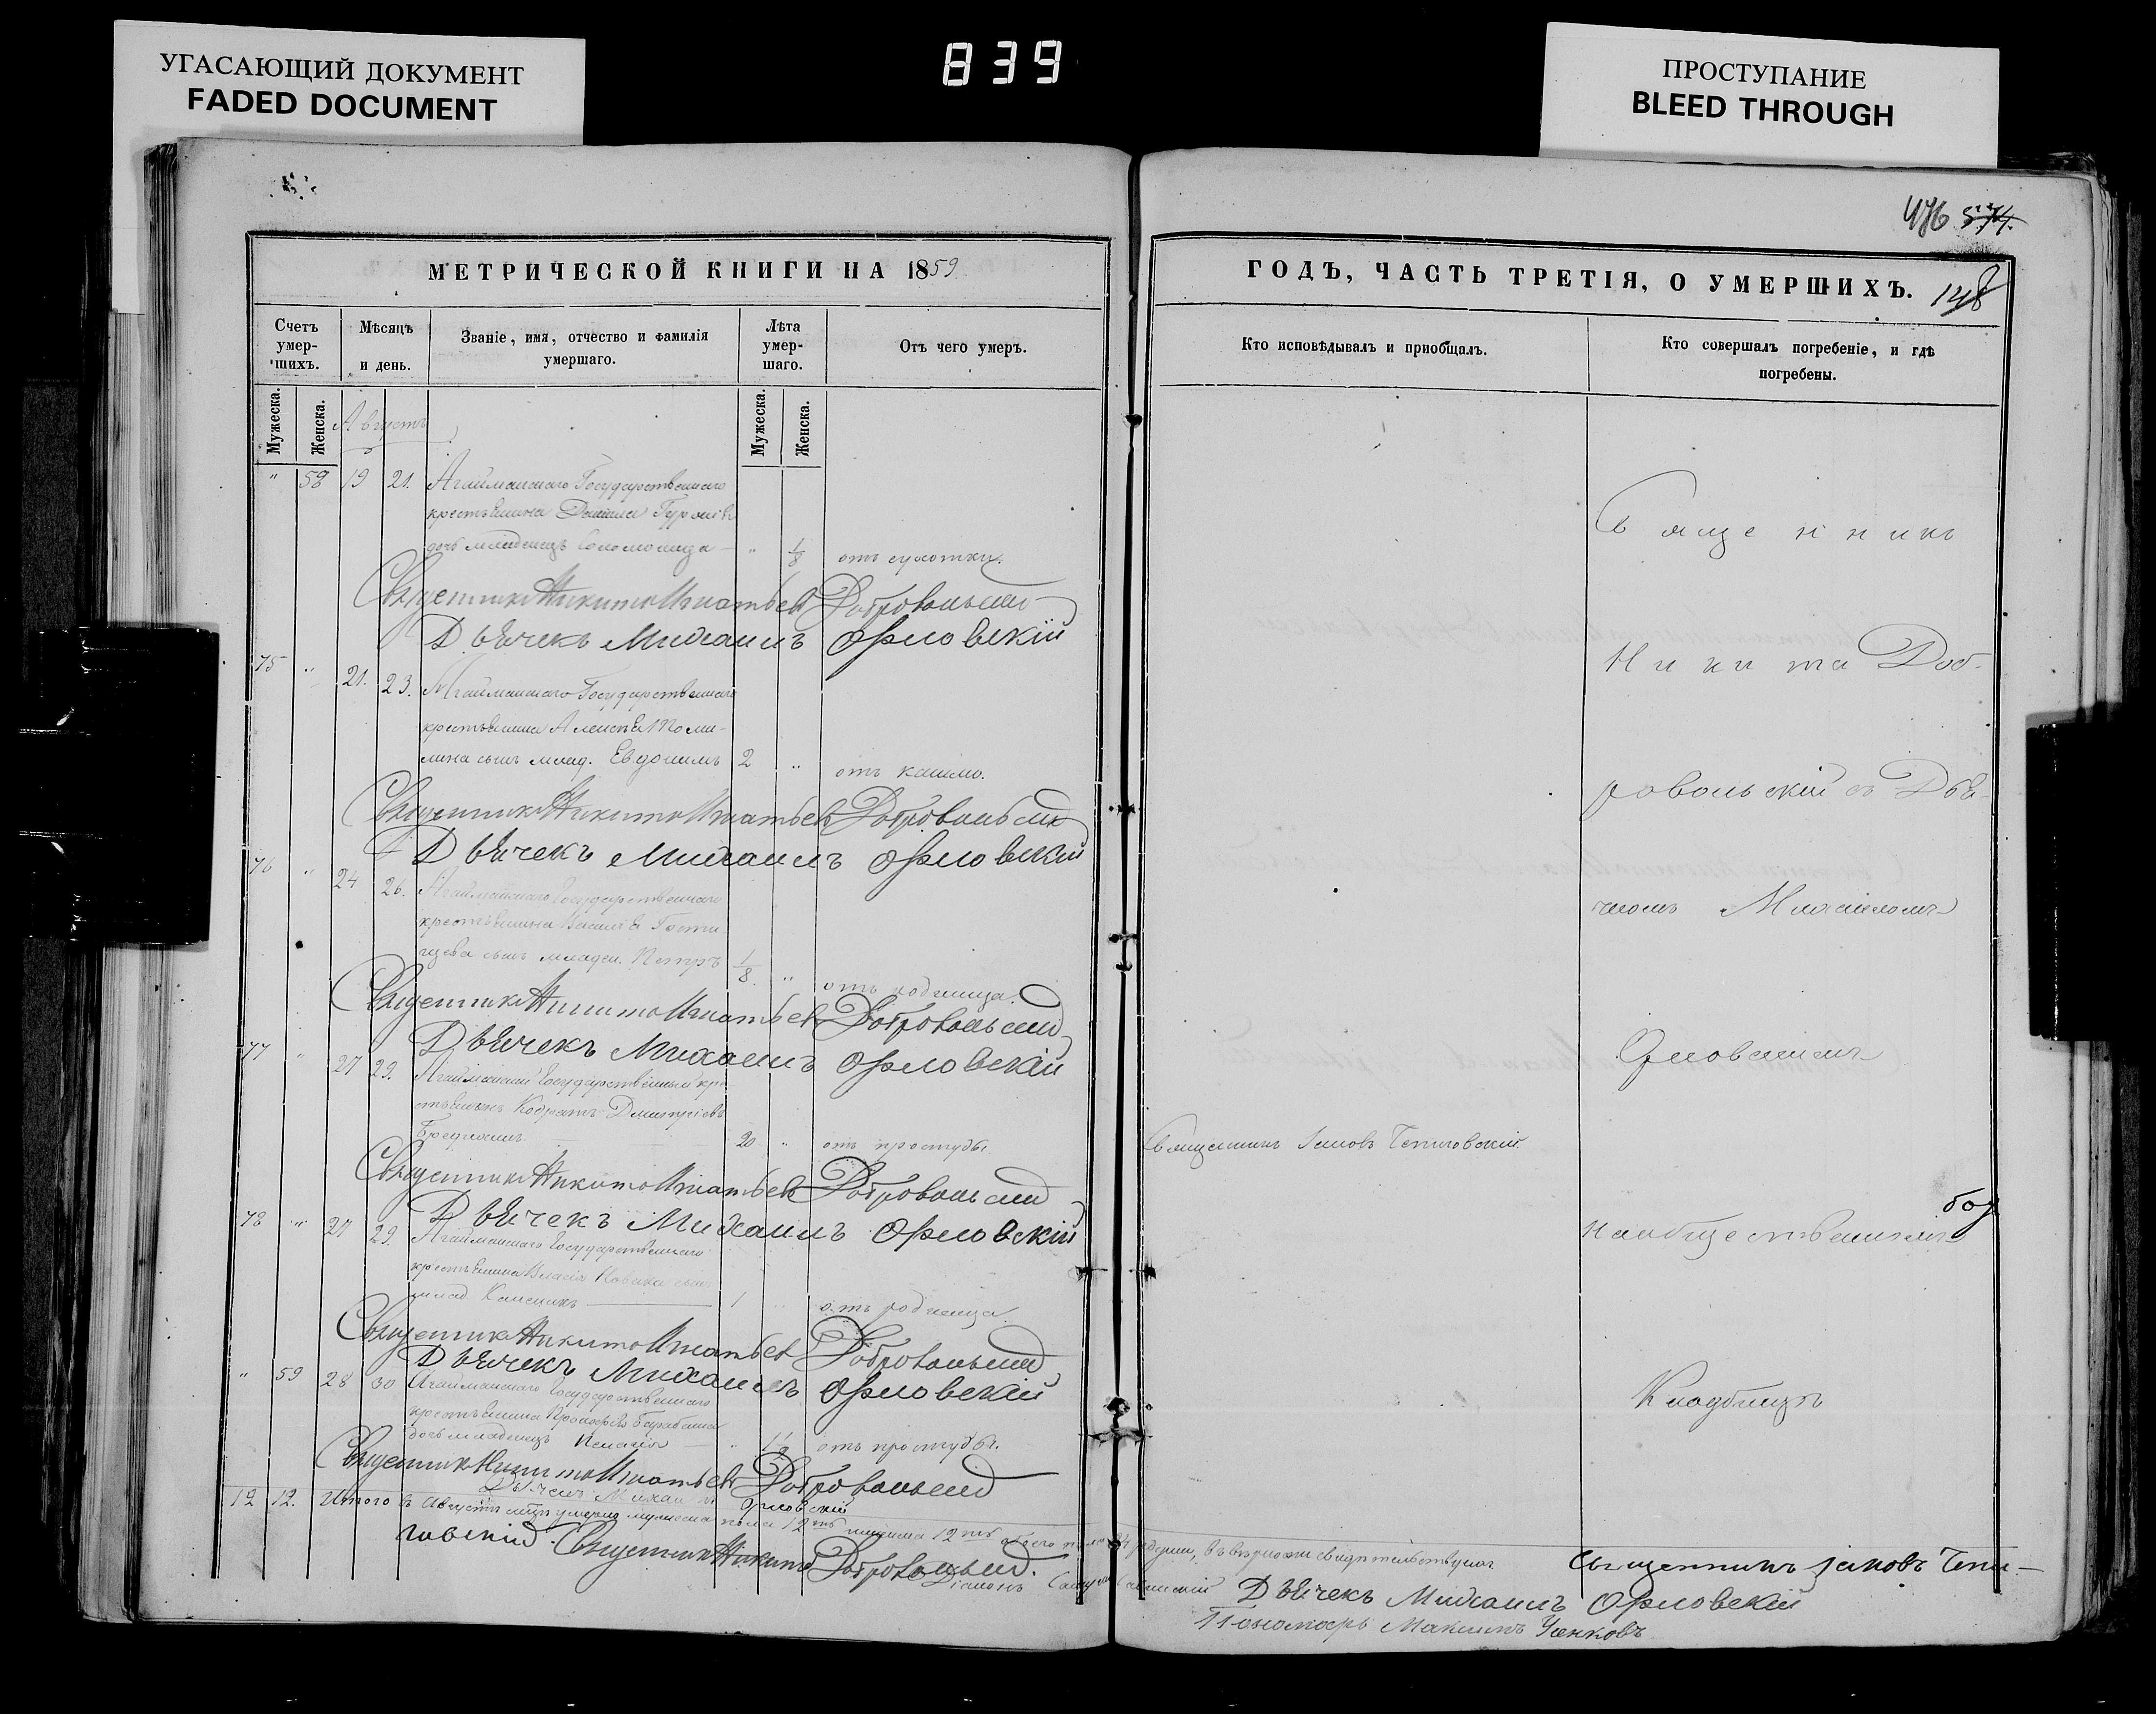 УГАСАЮЩИЙ ДОКУМЕНТ
FADED DOCUMENT
839
ПРОСТУПАНИЕ
BLEED THROUGH
476 574.
МЕТРИЧЕСКОЙ КНИГИ НА 1859
ГОДЪ, ЧАСТЬ ТРЕТІЯ, О УМЕРШИХЪ. 148
Счетъ умер-шихъ.
Мѣсяцъ и день.
Званіе, имя, отчество и фамилія умершаго.
Лѣта умер-шаго.
Отъ чего умеръ.
Кто исповѣдывалъ и приобщалъ.
Кто совершалъ погребеніе, и гдѣ погребены.
Мужеска. Женска. Мужеска. Женска.
Августъ
" 58 19 21. Агайманскаго Государственнаго
крестьянина Даніила
дочь младенецъ Соломонида " 1/8 отъ сухотки.
Священникъ Никита Игнатьевъ Добровольскій
Дьячекъ Михаилъ Орловскій
75 " 21. 23. Агайманскаго Государственнаго
крестьянина Алексѣя Томи-
лина сынъ млад. Евдокимъ 2 " отъ кашлю.
Священникъ Никита Игнатьевъ Добровольскій
Дьячекъ Михаилъ Орловскій
76 " 24 26. Агайманскаго Государственнаго
крестьянина Василія Гости
щева сынъ младен. Петръ 1/8 " отъ родимца.
Священникъ Никита Игнатьевъ Добровольскій
Дьячекъ Михаилъ Орловскій
77 " 27 29. Агайманскій Государственный кре
стьянинъ Кодратъ Дмитріевъ
20 " отъ простуды.
Священникъ Іаковъ
Священникъ Никита Игнатьевъ Добровольскій
Дьячекъ Михаилъ Орловскій
78 " 27 29. Агайманскаго Государственнаго
крестьянина Власія Новака сынъ
млад. 1 отъ родимца
Священникъ Никита Игнатьевъ Добровольскій
Дьячекъ Михаилъ Орловскій
" 59 28 30 Агайманскаго Государственнаго
крестьянина Прокофія
дочь младенецъ Пелагія " 1 1/2 отъ простуды.
Священникъ Никита Игнатьевъ Добровольскій
Дьячекъ Михаилъ Орловскій
Священникъ
Никита Доб-
ровольскій съ Дья-
чкомъ Михаиломъ
Орловскимъ
на общественномъ
Кладбищѣ
12 12. Итого въ Августѣ м-цѣ умерло мужеска пола 12ть женска 12ть обоего пола 24 душъ, въ вѣрности свидѣтельствуемъ Священникъ Іаковъ
Священникъ Никита Добровольскій.
Діаконъ
Дьячекъ Михаилъ Орловскій
Пономарь Максимъ Ушаковъ